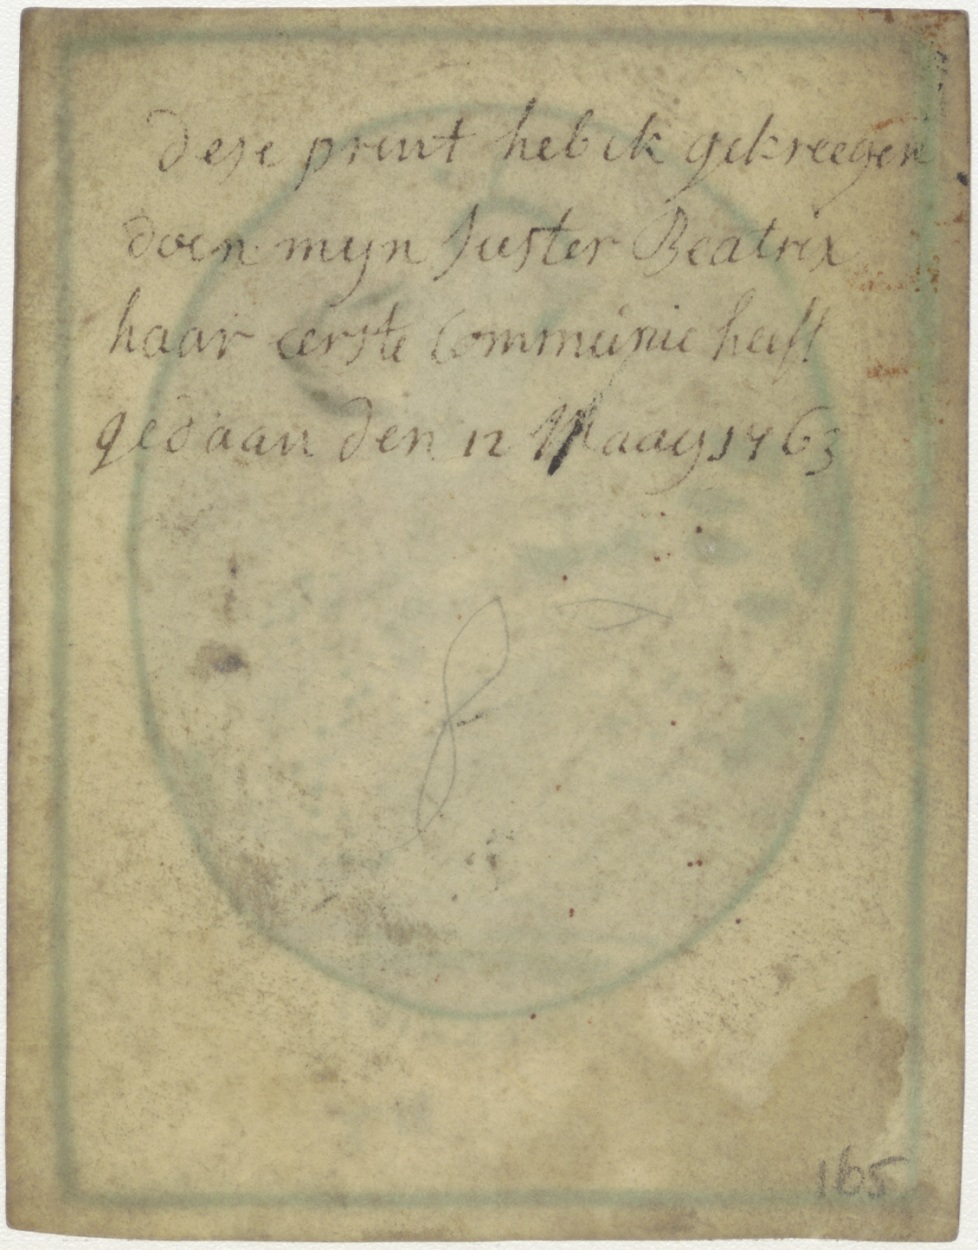 dese prent heb ik gekreegen
doen myn suster Beatrix
haar eerste Communie heeft
gedaan den 12 Maay 1763
165